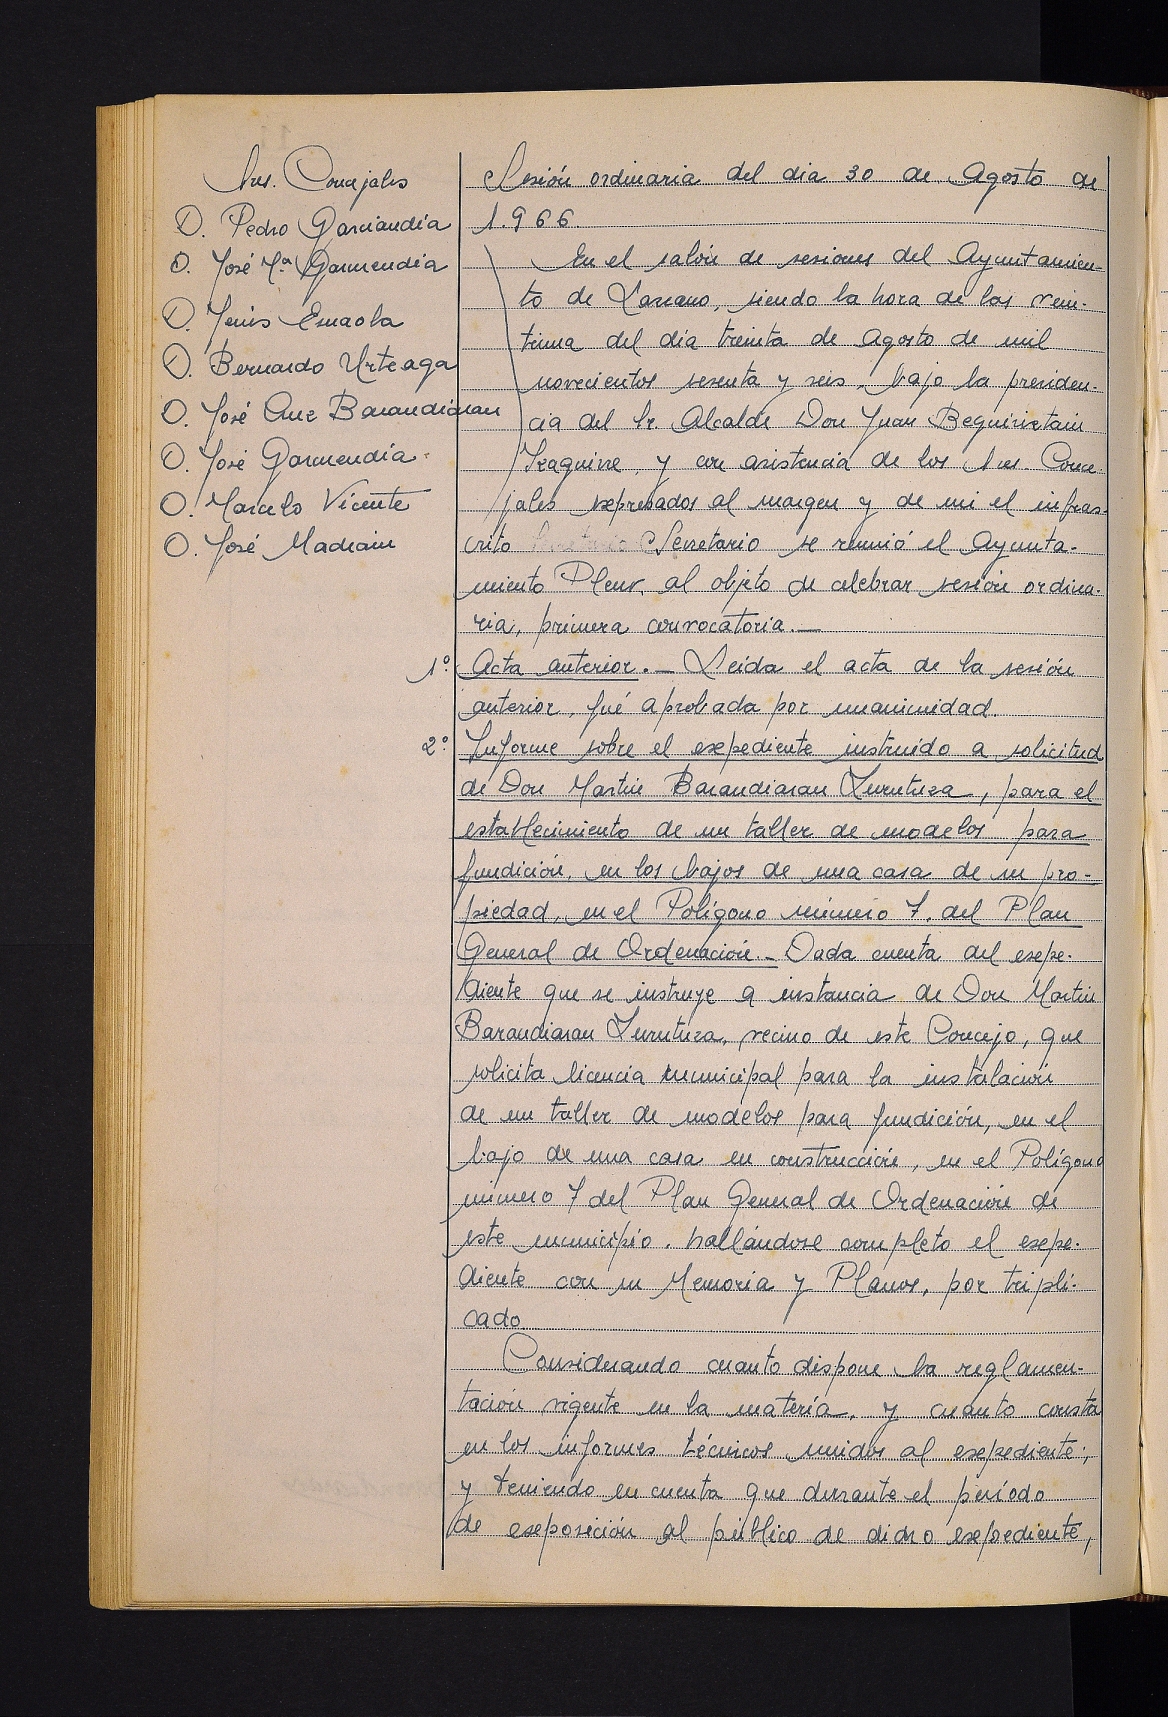 Sres. Concejales
D. Pedro Garciandia
D. José Mª Garmendia
D. Jesús Esnaola
D. Bernardo Urteaga
D. José Cruz Barandiaran
D. José Garmendia
D. Marcelo Vicente
D. José Madrain
Sesión ordinaria del dia 30 de Agosto de
1.966.
En el salón de sesiones del Ayuntamien-
to de Lazcano, siendo la hora de las vein-
tiuna del día treinta de Agosto de mil
novecientos sesenta y seis, bajo la presiden-
cia del Sr. Alcalde Don Juan Beguiristain
Izaguirre, y con asistencia de los Sres. Conce-
jales expresados al margen y de mi el infras-
crito Secretario se reunió el Ayunta-
miento Pleno, al objeto de celebrar sesión ordina-
ria, primera convocatoria.—
1º Acta anterior.— Leída el acta de la sesión
anterior, fué aprobada por unanimidad.
2º Informe sobre el expediente instruído a solicitud
de Don Martin Barandiaran Zurutuza, para el
establecimiento de un taller de modelos para
fundición, en los bajos de una casa de su pro-
piedad, en el Polígono número 7, del Plan
General de Ordenación.— Dada cuenta del expe-
diente que se instruye a instancia de Don Martin
Barandiaran Zurutuza, vecino de este Concejo, que
solicita licencia municipal para la instalación
de un taller de modelos para fundición, en el
bajo de una casa en construcción, en el Polígono
número 7 del Plan General de Ordenación de
este municipio, hallándose completo el expe-
diente con su Memoria y Planos, por tripli-
cado.
Considerando cuanto dispone la reglamen-
tación vigente en la materia, y cuanto consta
en los informes técnicos unidos al expediente;
y teniendo en cuenta que durante el período
de exposición al público de dicho expediente,